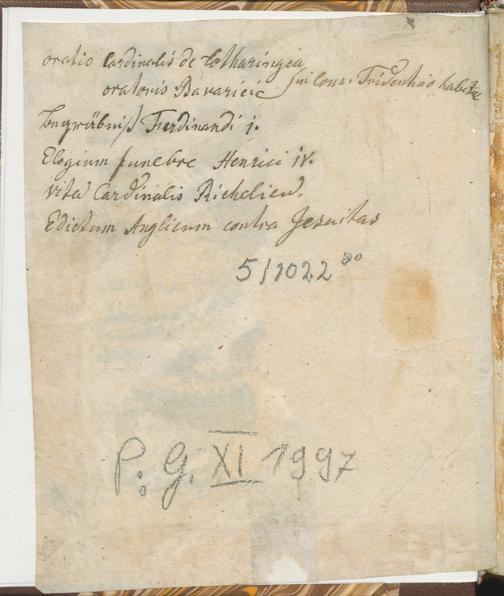 oratio Cardinalis de Lotharingia
oratoris Bavarici } in Conc. Tridentino habitae
Begräbniß Ferdinandi i.
Elogium funebre Henrici iv.
vita Cardinalis Richelieu.
Edictum Anglicum contra Jesuitas
5/1022 80
P. G. XI 1997